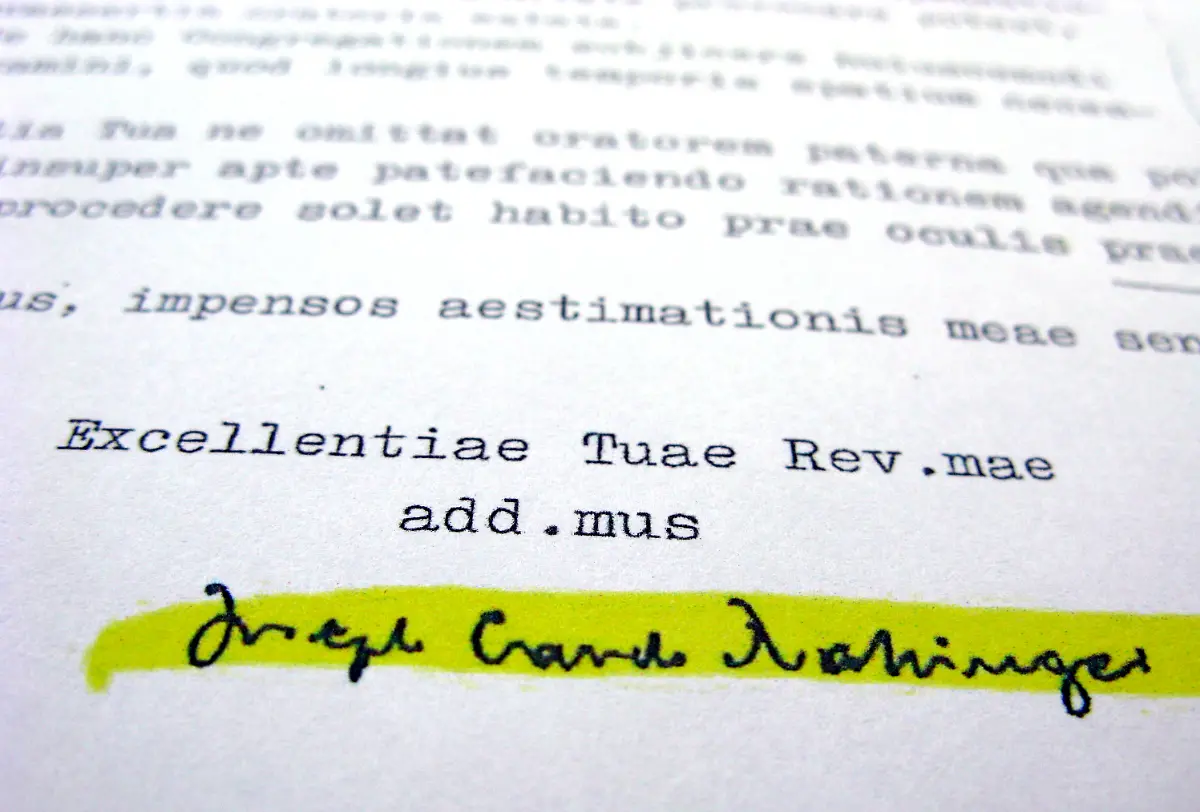 hanc Congregationem subjicere
quod longius temporis spatium neces-
Tua ne omittat oratorem paterna que
insuper apte patefaciendo rationem agendi
procedere solet habito prae oculis prae
us, impensos aestimationis meae sen
Excellentiae Tuae Rev.mae
add.mus
Joseph Card. Ratzinger